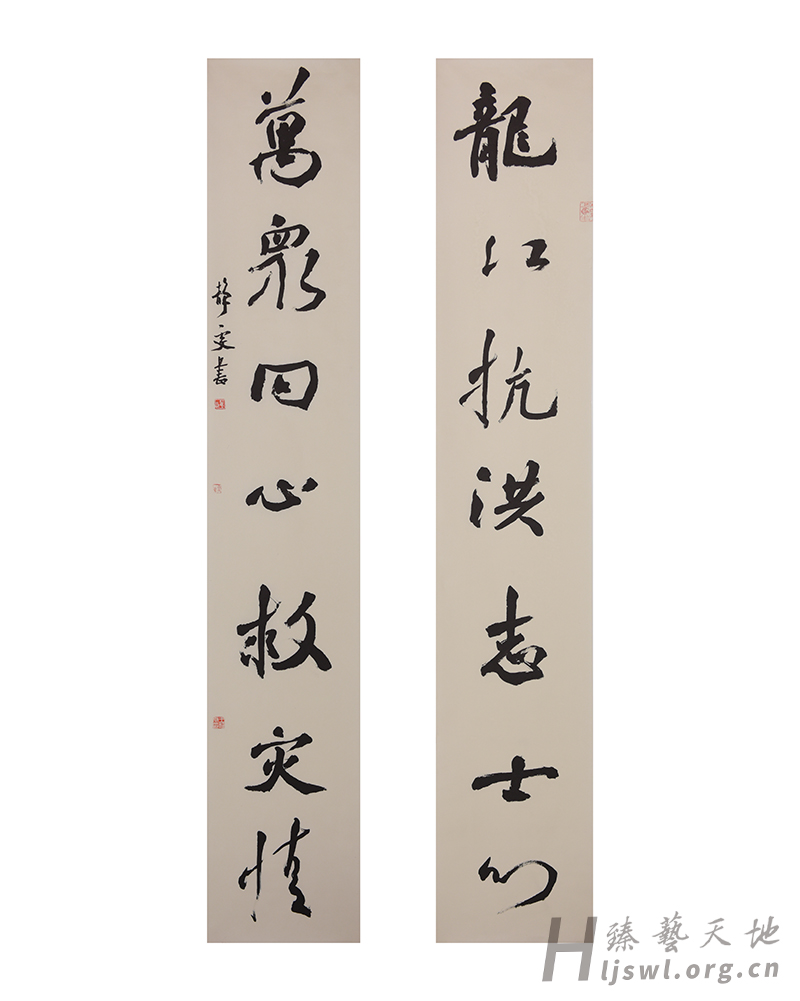 龍江抗洪志士们
萬眾同心救灾情
静雯書
臻藝天地
Hljswl.org.cn